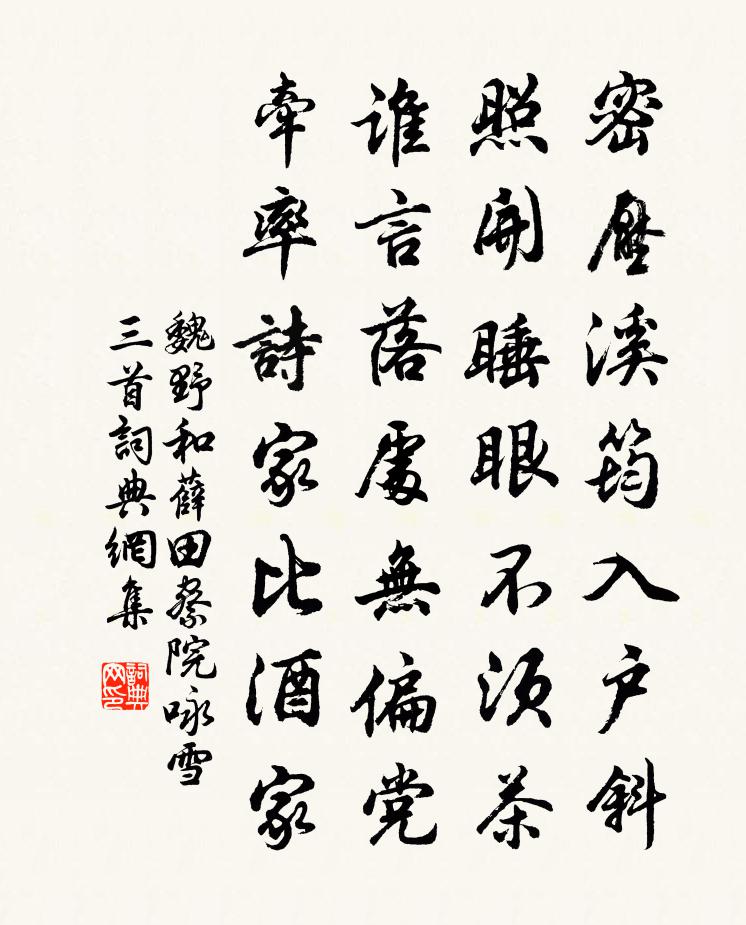 密壓溪筠入户斜
照開睡眼不須茶
誰言落處無偏党
牽率詩家比酒家
魏野和薛田察院咏雪
三首詞典網集
詞典网印